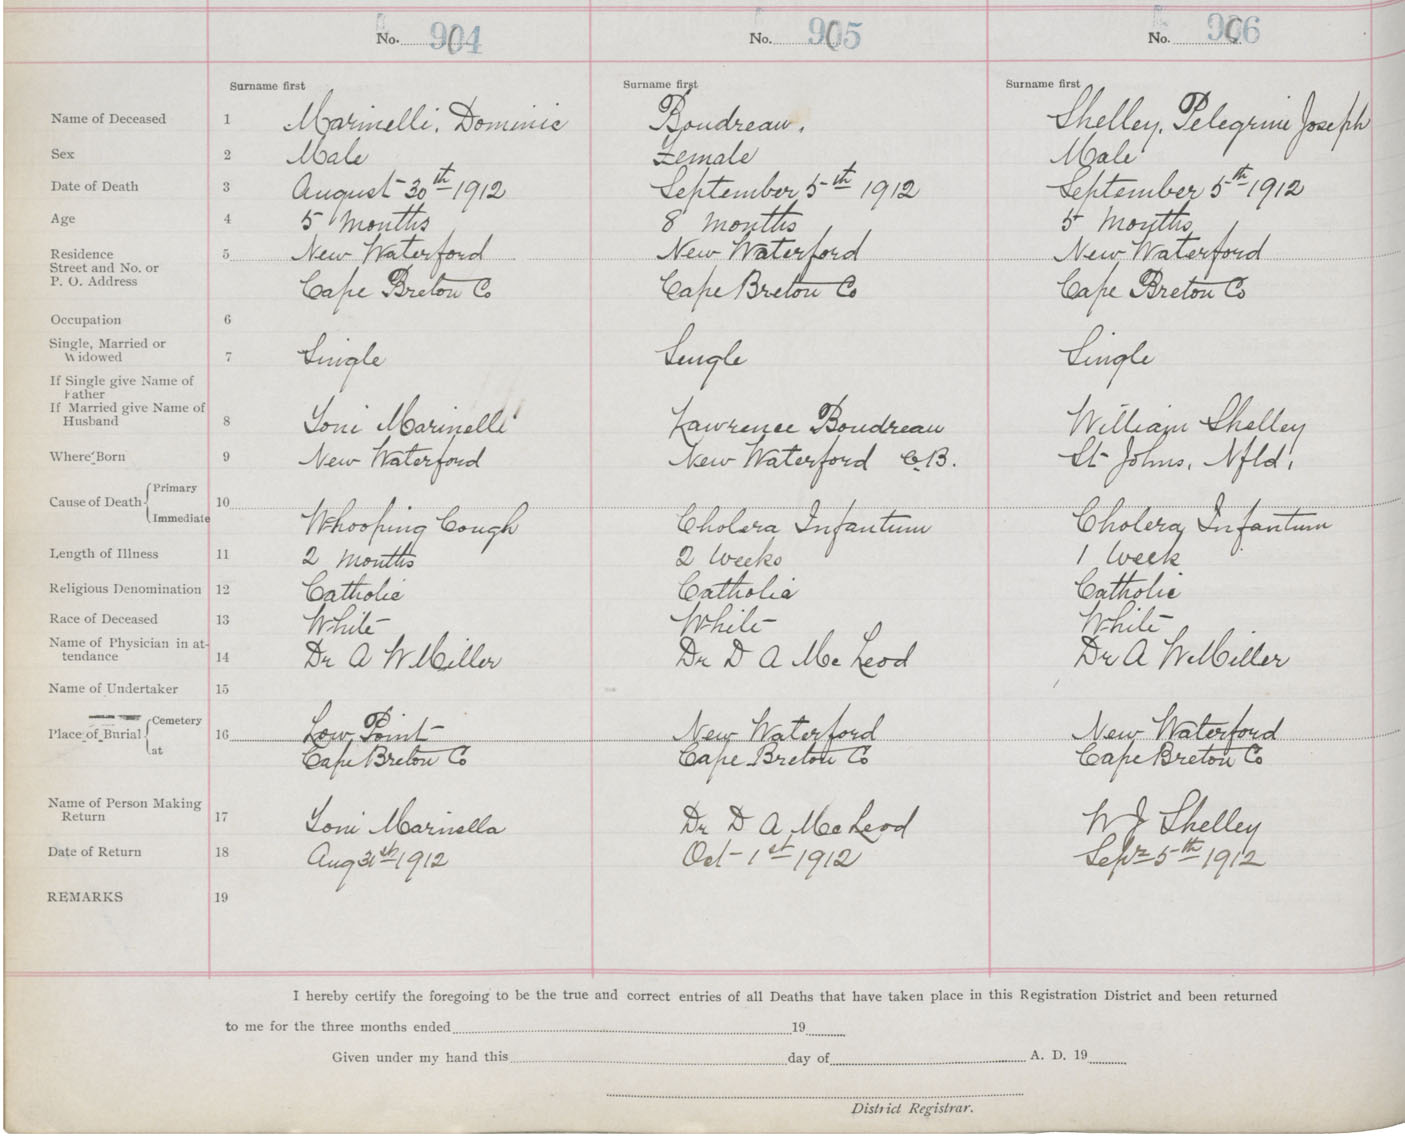 No. 904 No. 905 No. 906
Surname first Surname first Surname first
Name of Deceased 1 Marinelli, Dominic Boudreau, Shelley, Pelegrine Joseph
Sex 2 Male Female Male
Date of Death 3 August 30th 1912 September 5th 1912 September 5th 1912
Age 4 5 months 8 months 5 months
Residence 5 New Waterford New Waterford New Waterford
Street and No. or
P. O. Address Cape Breton Co Cape Breton Co Cape Breton Co
Occupation 6
Single, Married or
Widowed 7 Single Single Single
If Single give Name of
Father
If Married give Name of
Husband 8 Toni Marinelli Lawrence Boudreau William Shelley
Where Born 9 New Waterford New Waterford C.B. St Johns, Nfld,
Primary
Cause of Death 10
Immediate Whooping Cough Cholera Infantum Cholera Infantum
Length of Illness 11 2 months 2 weeks 1 week
Religious Denomination 12 Catholic Catholic Catholic
Race of Deceased 13 White White White
Name of Physician in at-
tendance 14 Dr A W Miller Dr D A McLeod Dr A W Miller
Name of Undertaker 15
Cemetery
Place of Burial 16 Low Point New Waterford New Waterford
at Cape Breton Co Cape Breton Co Cape Breton Co
Name of Person Making
Return 17 Toni Marinella Dr D A McLeod W J Shelley
Date of Return 18 Aug 31st 1912 Oct 1st 1912 Sepr 5th 1912
REMARKS 19
I hereby certify the foregoing to be the true and correct entries of all Deaths that have taken place in this Registration District and been returned
to me for the three months ended 19
Given under my hand this day of A. D. 19
District Registrar.